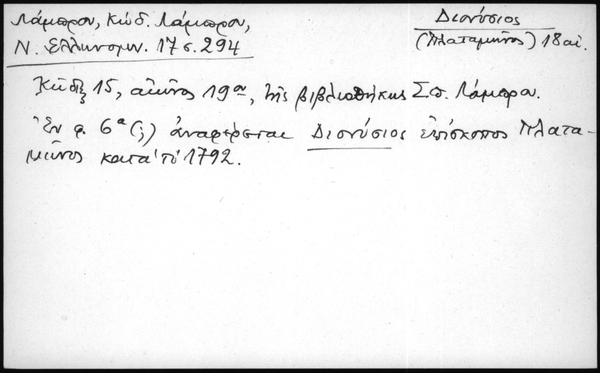 Λάμπρου, Κώδ. Λάμπρου,
Ν. Ελληνομν. 17 σ. 294
Διονύσιος
(Πλαταμῶνος) 18 αἰ.
Κῶδιξ 15, αἰῶνος 19ου, τῆς βιβλιοθήκης Σπ. Λάμπρου.
Ἐν φ. 6α (;) ἀναφέρεται Διονύσιος ἐπίσκοπος Πλατα-
μῶνος κατὰ τὸ 1792.